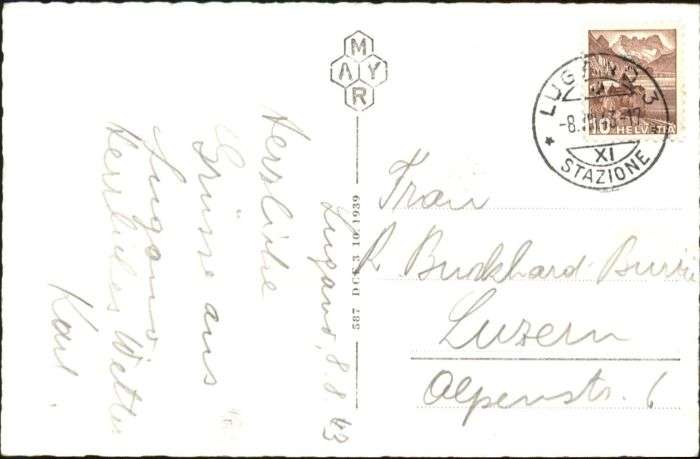 MAYR
LUGANO 3
-8.
-17
XI
STAZIONE
10 HELVETIA
587 DCS 3.10.1939
Lugano, 8.8.43
Herzliche
Grüsse aus
Lugano
Herrliches Wetter
Karl.
Frau
R. Burkhard-Burri
Luzern
Alpenstr. 6